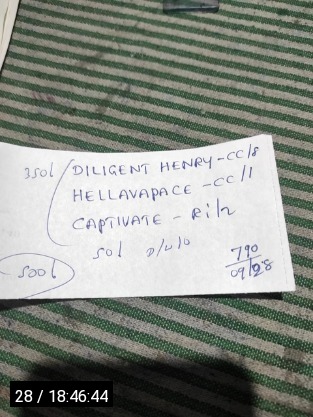 350l DILIGENT HENRY - CC/8
HELLAVAPACE - CC/1
CAPTIVATE - Ri/2
50l
500l
790
09/28
28 / 18:46:44